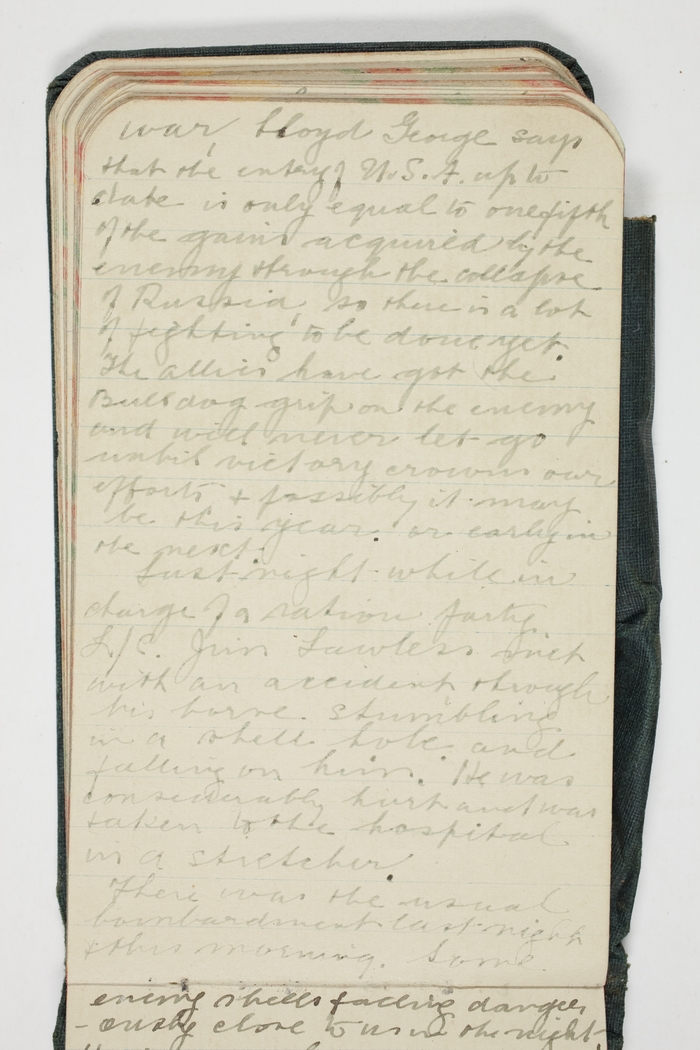 war, Lloyd George says
that the entry of U.S.A. up to
date is only equal to one fifth
of the gains acquired by the
enemy through the collapse
of Russia, so there is a lot
of fighting to be done yet.
The allies have got the
Bulldog grip on the enemy
and will never let go
until victory crowns our
efforts & possibly it may
be this year or early in
the next.
Last night while in
charge of a ration party
L/C. Jim Lawless met
with an accident through
his horse stumbling
in a shell hole and
falling on him. He was
considerably hurt and was
taken to the hospital
in a stretcher.
There was the usual
bombardment last night
& this morning. Some
enemy shells falling danger
-ously close to us in the night